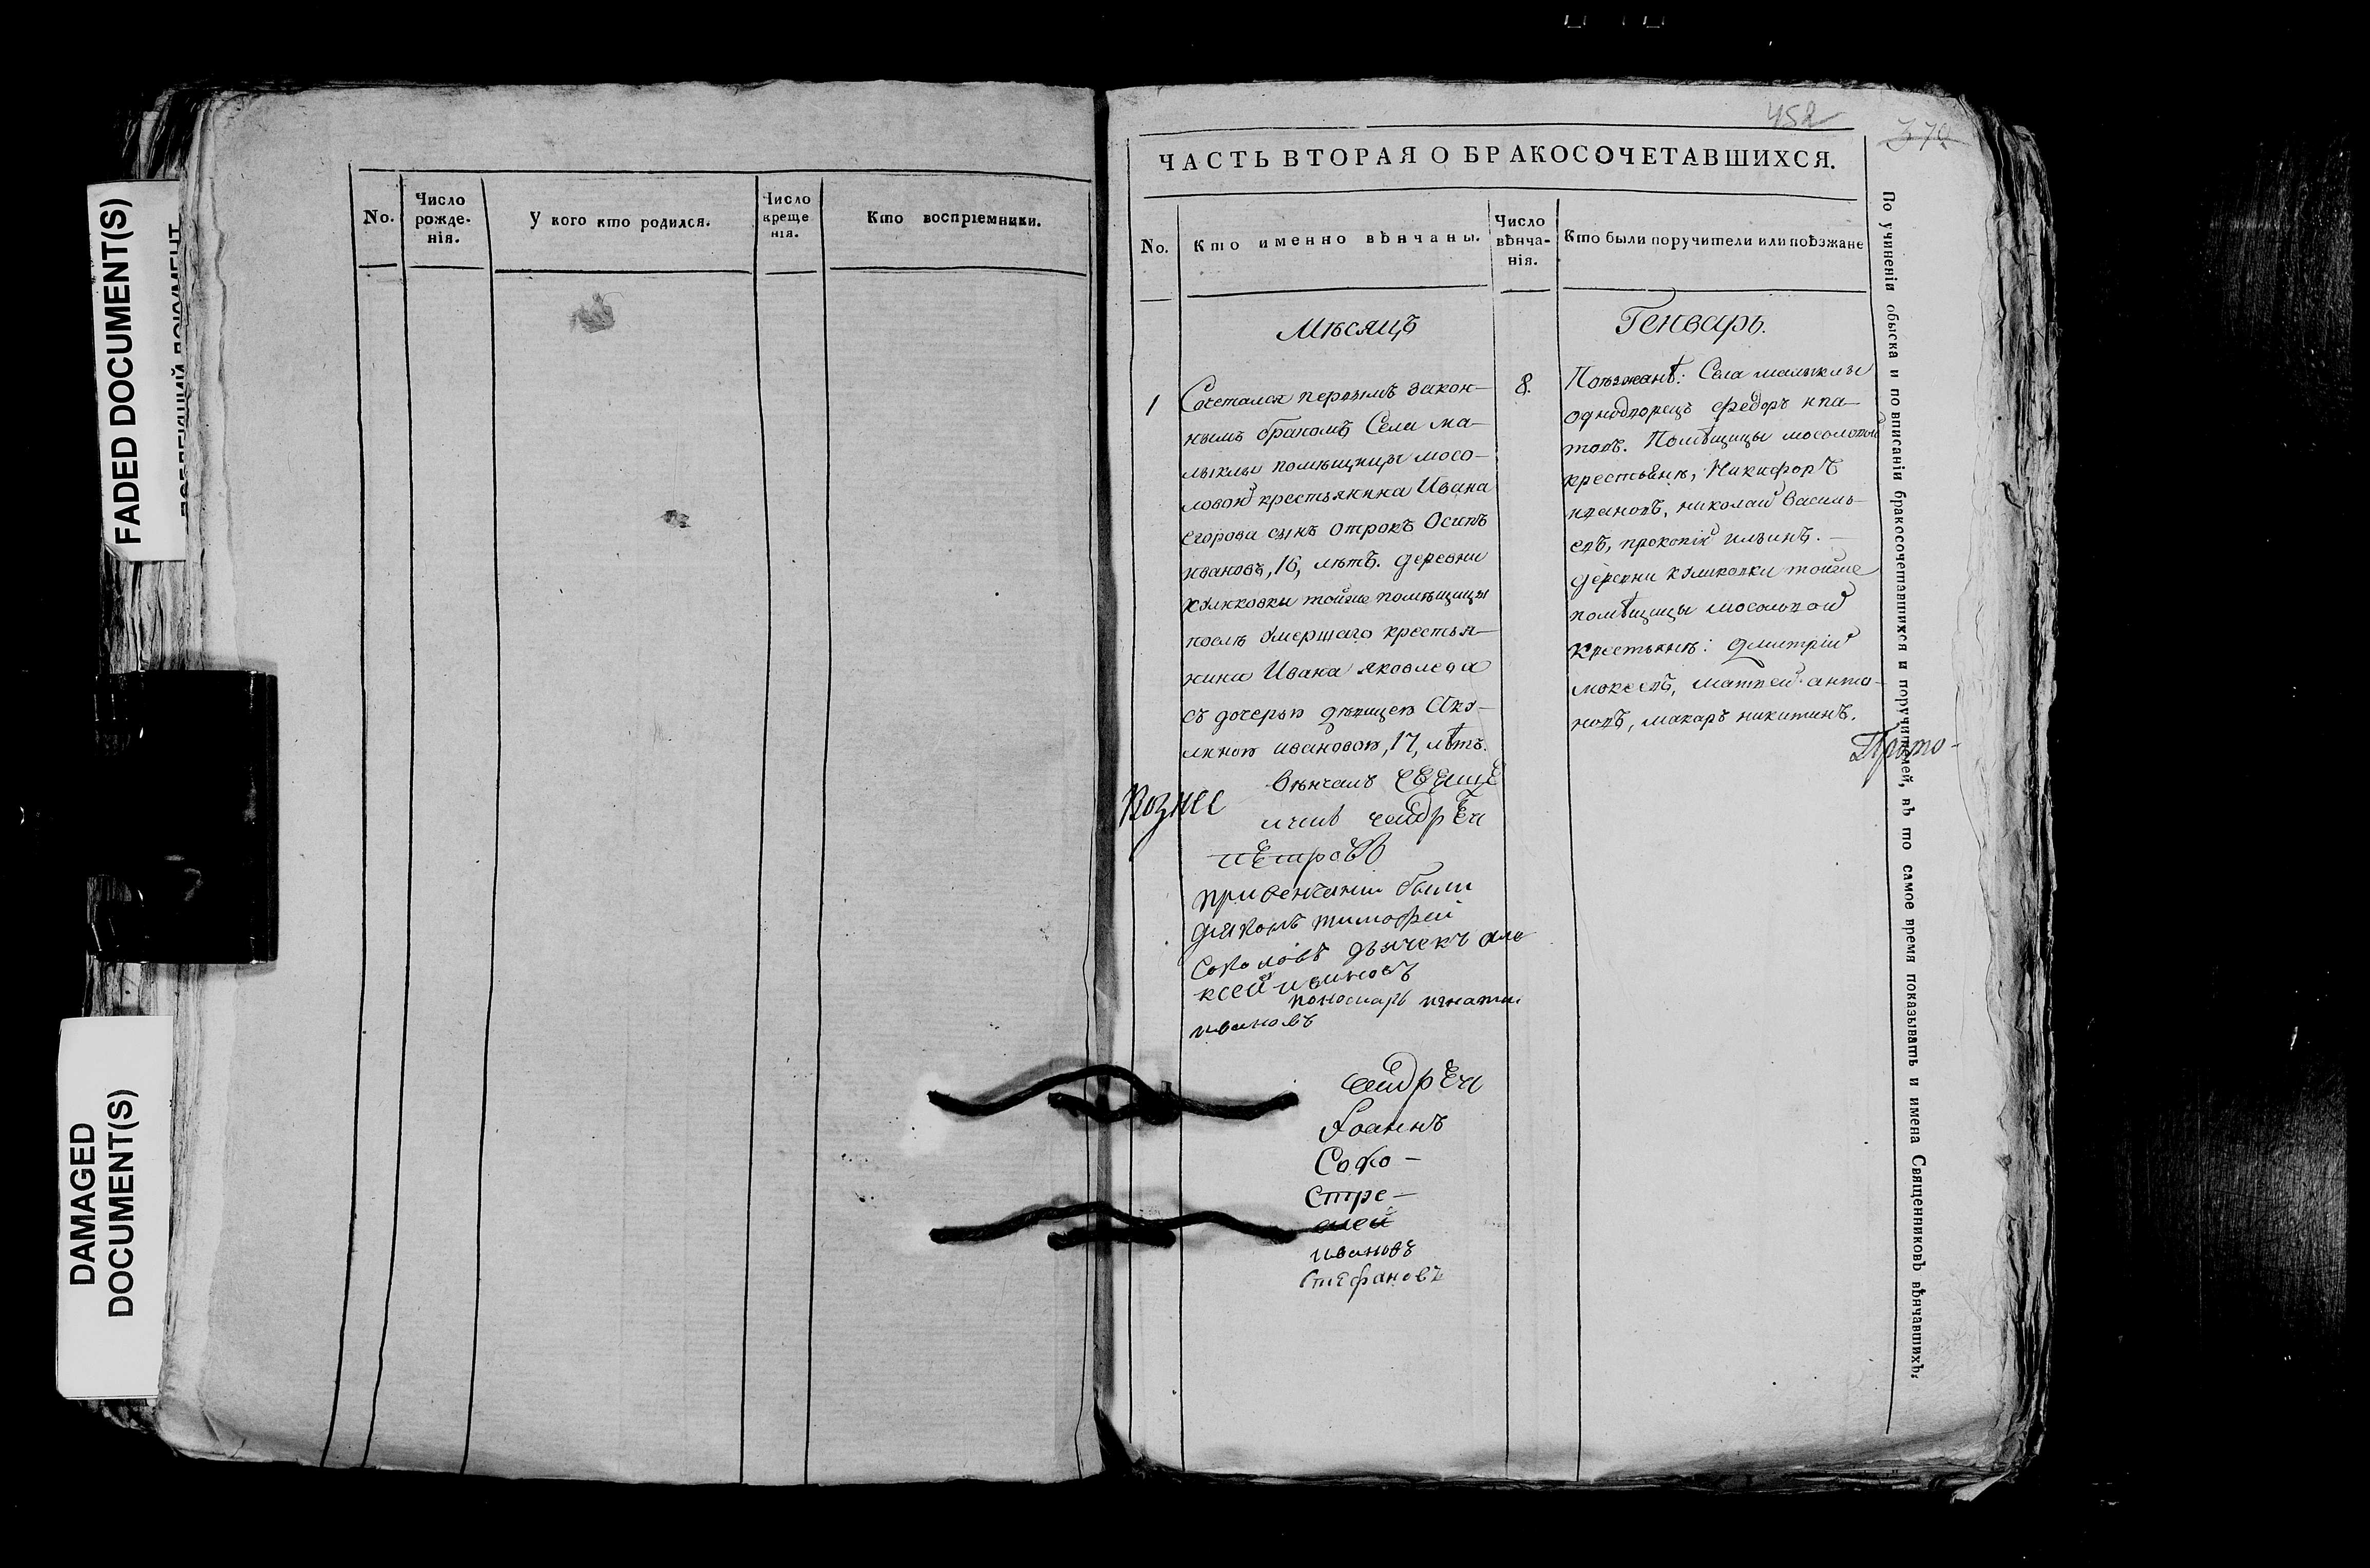 FADED DOCUMENT(S)
DAMAGED
DOCUMENT(S)
No.
Число
рожде-
нія.
У кого кто родился.
Число
креще
нія.
Кто воспріемники.
452
370
ЧАСТЬ ВТОРАЯ О БРАКОСОЧЕТАВШИХСЯ.
No.
Кто именно вѣнчаны.
Число
вѣнча-
нія.
Кто были поручители или поѣзжане
Мѣсяцъ
Генварь.
1
Сочетался первымъ закон-
нымъ бракомъ Села ма-
лыклы помѣщицы мосо-
ловой крестьянина Ивана
егорова сынъ отрокъ Осипъ
ивановъ, 16, лѣтъ. деревни
куликовки тойже помѣщицы
послѣ умершаго крестья-
нина Ивана яковлева
съ дочерью дѣвицею Аку-
линою ивановою, 17, лѣтъ.
вѣнчалъ свяще
никъ андрей
петровъ
при венчании были
дияконъ тимофей
Соколовъ дьячекъ але
ксей ивановъ
пономарь игнатии
ивановъ
8.
Поѣзжанѣ: Села малыклы
однодворецъ федоръ ипа-
товъ. Помѣщицы мосоловой
крестьянѣ, Никифоръ
ивановъ, николай василь-
евъ, прокопій ильинъ. —
деревни куликовки тойже
помѣщицы мосоловой
крестьянѣ: дмитрій
мокеевъ, матвей анто-
новъ, макаръ никитинъ.
Прото-
Вознес
андрей
Іоаннъ
Соко-
Стре-
лей
ивановъ
Стефановъ
По учиненіи обыска и по вписаніи бракосочетавшихся и поручителей, въ то самое время показывать и имена Священниковъ вѣнчавшихъ.